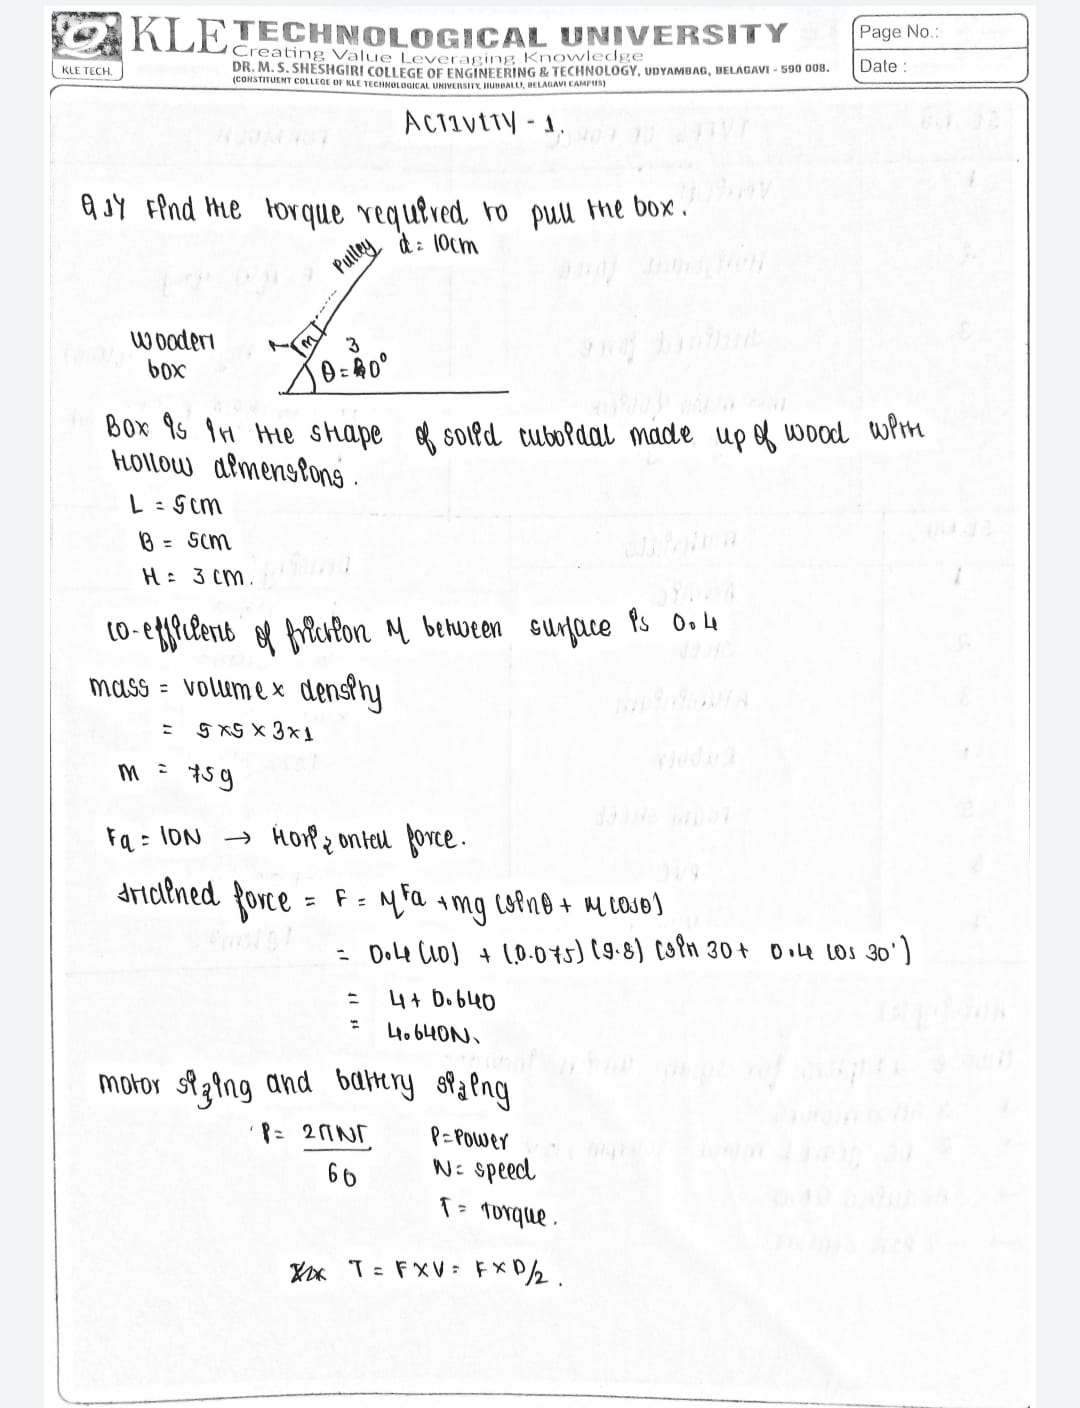 KLE TECHNOLOGICAL UNIVERSITY
Creating Value Leveraging Knowledge
KLE TECH.
DR. M. S. SHESHGIRI COLLEGE OF ENGINEERING & TECHNOLOGY, UDYAMBAG, BELAGAVI - 590 008.
(CONSTITUENT COLLEGE OF KLE TECHNOLOGICAL UNIVERSITY, HUBBALLI, BELAGAVI CAMPUS)
Page No.:
Date :
Activity - 1.
Find the torque required to pull the box.
Pulley d = 10cm
wooden
box
m
3
θ = 0°
Box is in the shape of solid cuboidal made up of wood with
Hollow dimensions.
L = 5cm
B = 5cm
H = 3cm.
co-efficient of friction M between surface is 0.4
mass = volume x density
= 5x5x3x1
m = 75g
Fa = 10N → Horizontal force.
Inclined force = F = MFa + mg (sinθ + M cosθ)
= 0.4 (10) + (0.075) (9.8) (sin 30 + 0.4 cos 30°)
= 4 + 0.640
= 4.640N.
motor sizing and battery sizing
P = 2πNT P = Power
60 N = speed
T = torque.
T = F x V = F x D/2.